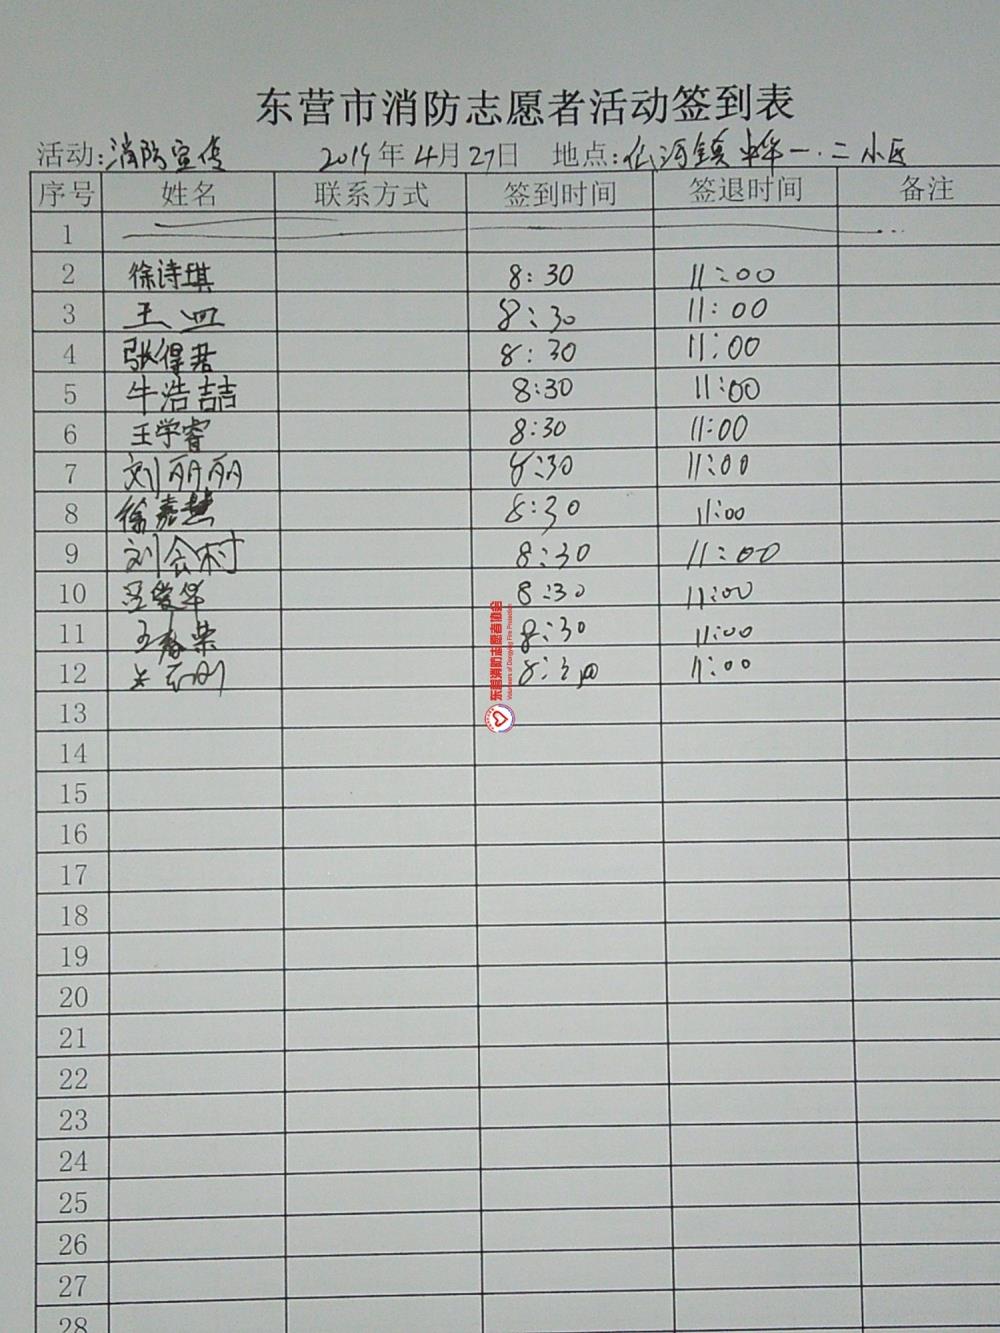 东营市消防志愿者活动签到表
活动:消防宣传 2019年4月27日 地点:仙河镇 一.二小区
序号 姓名 联系方式 签到时间 签退时间 备注
1
2 徐诗琪 8:30 11:00
3 王四 8:30 11:00
4 张得君 8:30 11:00
5 牛浩喆 8:30 11:00
6 王学睿 8:30 11:00
7 刘丽丽 8:30 11:00
8 徐嘉慧 8:30 11:00
9 刘会村 8:30 11:00
10 8:30 11:00
11 王春荣 8:30 11:00
12 8:30 11:00
13
14
15
16
17
18
19
20
21
22
23
24
25
26
27
28
东营消防志愿者协会
Volunteers of Dongying Fire Protection